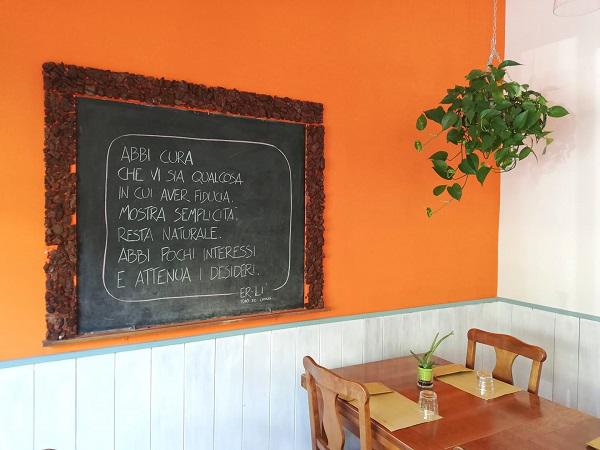 ABBI CURA
CHE VI SIA QUALCOSA
IN CUI AVER FIDUCIA.
MOSTRA SEMPLICITÀ,
RESTA NATURALE.
ABBI POCHI INTERESSI
E ATTENUA I DESIDERI.
ER-LI